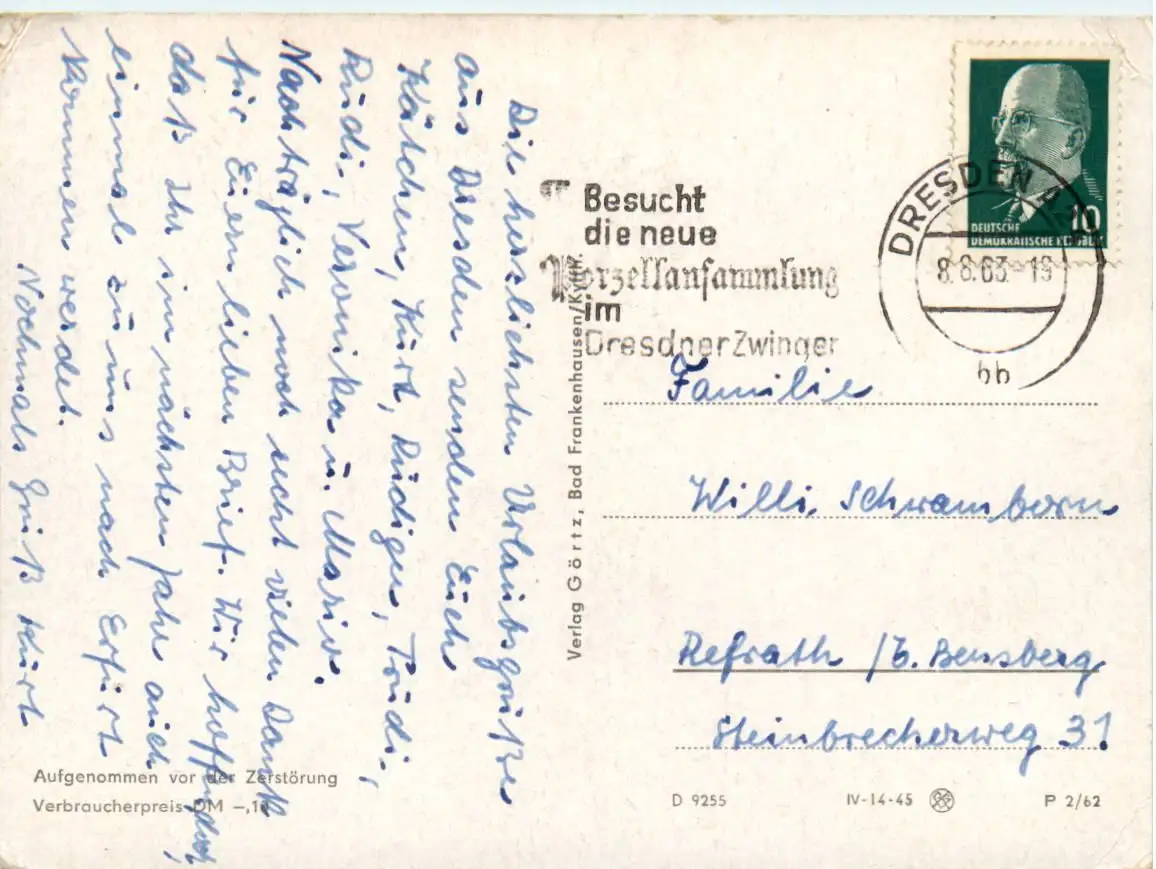 Die herzlichsten Urlaubsgrüße
aus Dresden senden Euch
Kätchen, Kurt, Rüdiger, Trudi,
Rudi, Veronika u. Mario.
Nachträglich noch recht vielen Dank
für Euern lieben Brief. Wir hoffen doch,
daß Ihr im nächsten Jahr auch
einmal zu uns nach Erfurt
kommen werdet.
Nochmals Gruß Kurt
Aufgenommen vor der Zerstörung
Verbraucherpreis DM –,18
Verlag Görtz, Bad Frankenhausen/Kyffh.
Besucht
die neue
Porzellansammlung
im
Dresdner Zwinger
DRESDEN
8.8.63-19
bb
10
DEUTSCHE
DEMOKRATISCHE REPUBLIK
Familie
Willi Schwamborn
Refrath / b. Bensberg
Steinbrecherweg 31
D 9255 IV-14-45 P 2/62